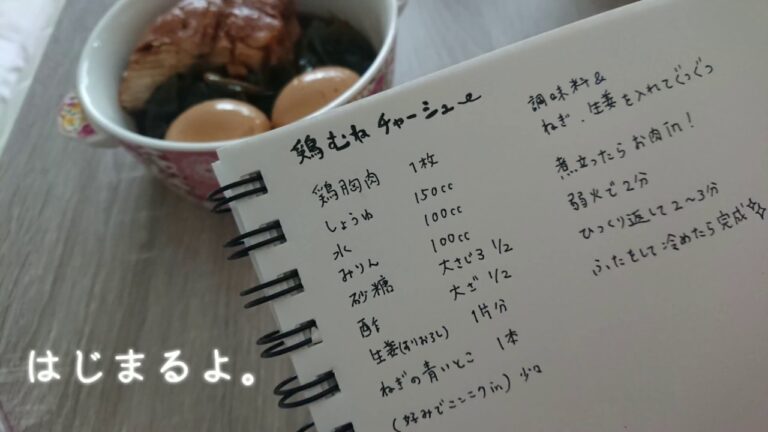 鶏むねチャーシュー
鶏胸肉 1枚
しょうゆ 150cc
水 100cc
みりん 100cc
砂糖 大さじ3 1/2
酢 大さじ 1/2
生姜(すりおろし) 1片分
ねぎの青いとこ 1本
(好みでニンニクin) 少々
調味料&
ねぎ、生姜を入れてぐつぐつ
煮立ったらお肉in!
弱火で2分
ひっくり返して2〜3分
ふたをして冷めたら完成
はじまるよ。